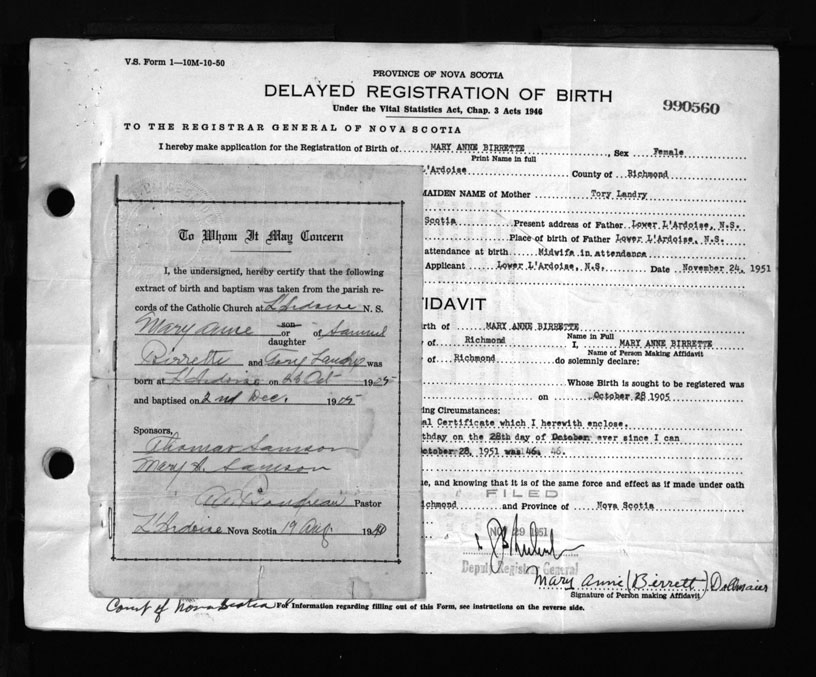 V.S. Form 1—10M-10-50
PROVINCE OF NOVA SCOTIA
DELAYED REGISTRATION OF BIRTH
Under the Vital Statistics Act, Chap. 3 Acts 1946
990560
TO THE REGISTRAR GENERAL OF NOVA SCOTIA
I hereby make application for the Registration of Birth of MARY ANNE BIRRETTE, Sex Female
Print Name in full
L'Ardoise County of Richmond
MAIDEN NAME of Mother Tory Landry
Scotia Present address of Father Lower L'Ardoise, N.S.
Place of birth of Father Lower L'Ardoise, N.S.
attendance at birth Midwife in attendance
Applicant Lower L'Ardoise, N.S. Date November 24, 1951
FIDAVIT
Birth of MARY ANNE BIRRETTE
Name in Full
of Richmond I, MARY ANNE BIRRETTE
Name of Person Making Affidavit
of Richmond do solemnly declare:
Whose Birth is sought to be registered was
on October 28 1905
ing Circumstances:
al Certificate which I herewith enclose.
thday on the 28th day of October ever since I can
October 28, 1951 was 46. 46.
ue, and knowing that it is of the same force and effect as if made under oath
ichmond and Province of Nova Scotia
FILED
NOV 29 1951
Deputy Registrar General
Mary Anne (Birrett)
Signature of Person making Affidavit
To Whom It May Concern
I, the undersigned, hereby certify that the following
extract of birth and baptism was taken from the parish re-
cords of the Catholic Church at L'Ardoise N. S.
Mary Anne son or daughter of Samuel
Birrette and Landry was
born at L'Ardoise on Oct 1905
and baptised on 2nd Dec. 1905
Sponsors,
Thomas Samson
Mary A. Samson
Boudreau Pastor
L'Ardoise Nova Scotia 19 Aug 19
Count of Nova Scotia For Information regarding filling out of this Form, see instructions on the reverse side.